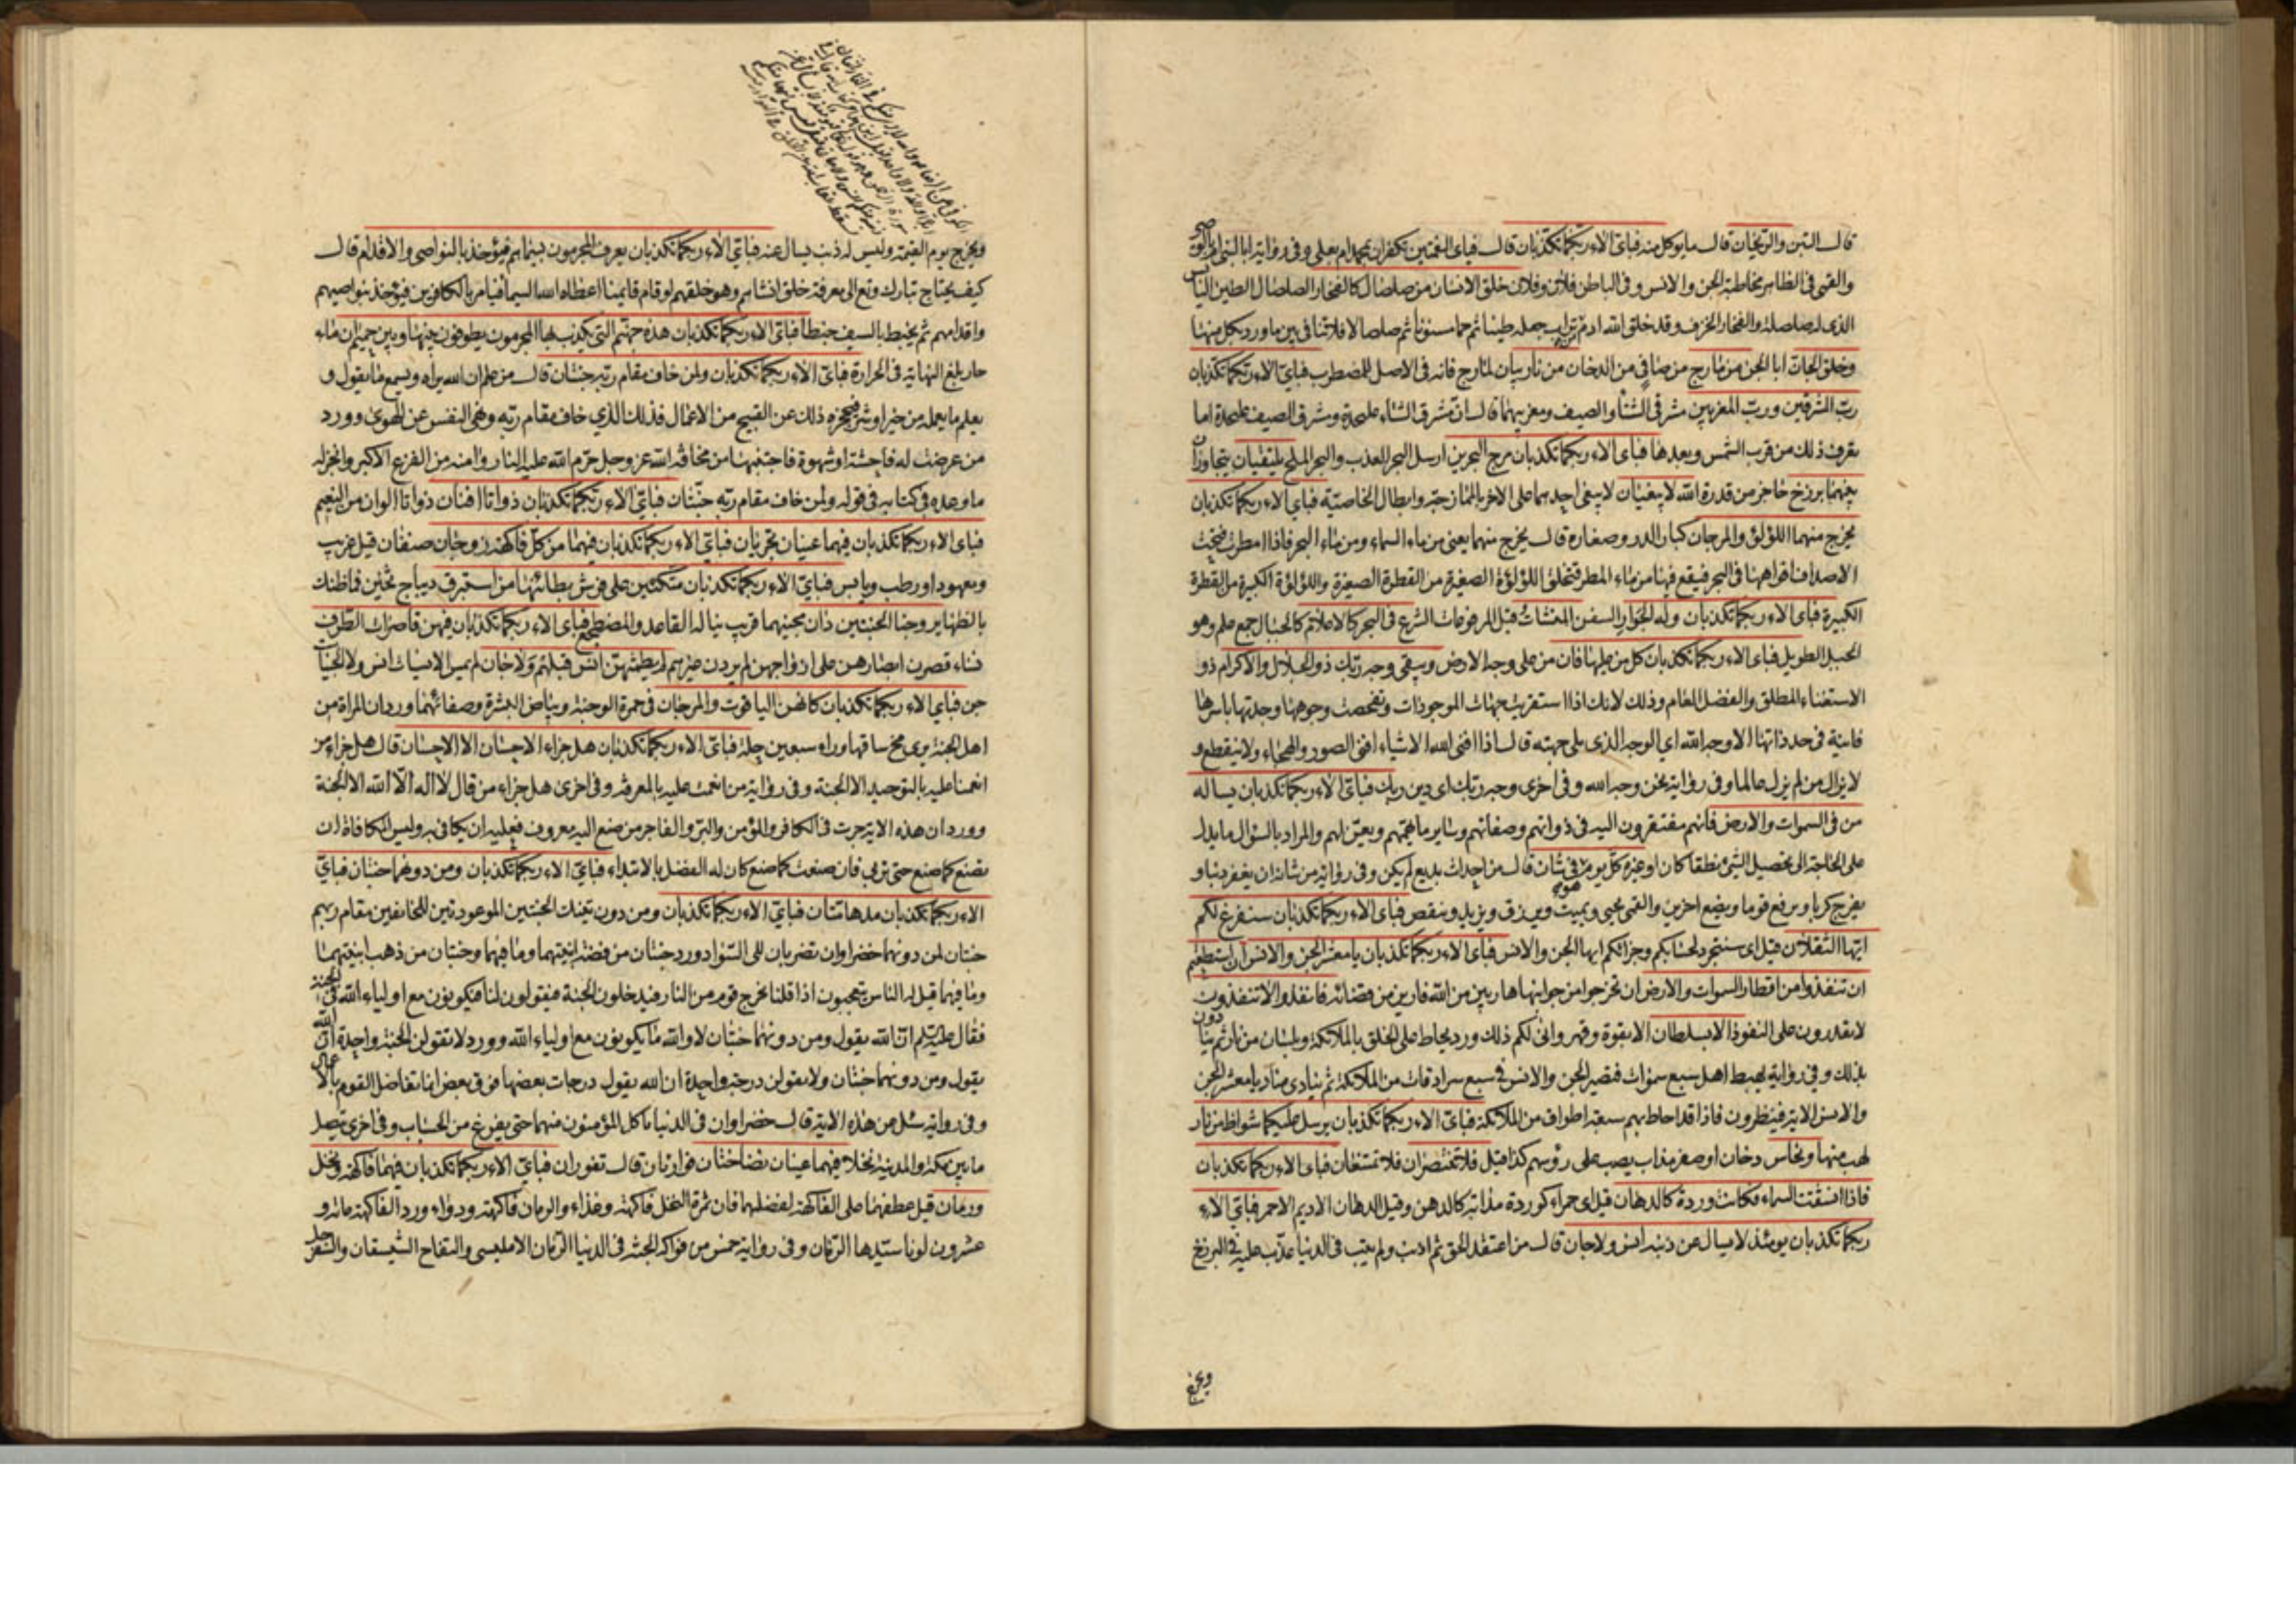 قال التبن والريحان قال ما يوكل منه فباى الاء ربكما تكذبان قال فباى النعمتين تكفران بمحمد ام بعلى وفى رواية ابالنبى ام بالوصى
والقمى فى الظاهر مخاطبة الجن والانس وفى الباطن فلان وفلان خلق الانسان من صلصال كالفخار الصلصال الطين اليابس
الذى له صلصلة والفخار الخزف وقد خلق الله ادم من تراب جعله طينا ثم حما مسنونا ثم صلصالا فلا تنافى بين ما ورد بكل منها
وخلق الجان ابا الجن من مارج من صافى من الدخان من نار بيان لمارج فانه فى الاصل للمضطرب فباى الاء ربكما تكذبان
رب المشرقين ورب المغربين مشرقى الشتاء والصيف ومغربيهما قال ان مشرق الشتاء عليحدة ومشرق الصيف عليحدة اما
تعرف ذلك من قرب الشمس وبعدها فباى الاء ربكما تكذبان مرج البحرين ارسل البحر العذب والبحر الملح يلتقيان يتجاوران
بينهما برزخ حاجز من قدرة الله لا يبغيان لا يبغى احدهما على الاخر بالممازجة وابطال الخاصية فباى الاء ربكما تكذبان
يخرج منهما اللؤلؤ والمرجان كبار الدر وصغاره قال يخرج منهما يعنى من ماء السماء ومن ماء البحر فاذا امطرت فتحت
الاصداف افواهها فى البحر فيقع فيها من ماء المطر فتخلق اللؤلؤة الصغيرة من القطرة الصغيرة واللؤلؤة الكبيرة من القطرة
الكبيرة فباى الاء ربكما تكذبان وله الجوار السفن المنشات قيل المرفوعات الشرع فى البحر كالاعلام كالجبال جمع علم وهو
الجبل الطويل فباى الاء ربكما تكذبان كل من عليها فان من على وجه الارض ويبقى وجه ربك ذو الجلال والاكرام ذو
الاستغناء المطلق والفضل العام وذلك لانك اذا استقريت جهات الموجودات وتفحصت وجوهها وجدتها باسرها
فانية فى حد ذاتها الا وجه الله اى الوجه الذى يلى جهته قال اذا افنى الله الاشياء افنى الصور والهجاء ولا ينقطع و
لا يزال من لم يزل عالما وفى رواية نحن وجه الله وفى اخرى وجه ربك اى دين ربك فباى الاء ربكما تكذبان يساله
من فى السموات والارض فانهم مفتقرون اليه فى ذواتهم وصفاتهم وساير ما يهمهم ويعن لهم والمراد بالسؤال ما يدل
على الحاجة الى تحصيل الشئ نطقا كان او غيره كل يوم هو فى شان قال من احداث بديع لم يكن وفى رواية من شانه ان يغفر ذنبا و
يفرج كربا ويرفع قوما ويضع اخرين والقمى يحيى ويميت ويرزق ويزيد وينقص فباى الاء ربكما تكذبان سنفرغ لكم
ايها الثقلان قيل اى سنتجرد لحسابكم وجزائكم ايها الجن والانس فباى الاء ربكما تكذبان يا معشر الجن والانس ان استطعتم
ان تنفذوا من اقطار السموات والارض ان تخرجوا من جوانبها هاربين من الله فارين من قضائه فانفذوا لا تنفذون
لا تقدرون على النفوذ الا بسلطان الا بقوة وقهر وانى لكم ذلك ورد يحاط على الخلق بالملائكة وبلسان من نار ثم ينادون
بذلك وفى رواية يهبط اهل سبع سموات فتصير الجن والانس فى سبع سرادقات من الملائكة ثم ينادى مناد يا معشر الجن
والانس الاية فينظرون فاذا قد احاط بهم سبعة اطواف من الملائكة فباى الاء ربكما تكذبان يرسل عليكما شواظ من نار
لهب منها ونحاس دخان او صفر مذاب يصب على رؤسهم كذا قيل فلا تنتصران فلا تمتنعان فباى الاء ربكما تكذبان
فاذا انشقت السماء فكانت وردة كالدهان قيل اى حمراء كوردة مذابة كالدهن وقيل الدهان الاديم الاحمر فباى الاء
ربكما تكذبان يومئذ لا يسال عن ذنبه انس ولا جان قال من اعتقد الحق ثم اذنب ولم يتب فى الدنيا عذب عليه فى البرزخ
ويخرج
ويخرج يوم القيمة وليس له ذنب يسال عنه فباى الاء ربكما تكذبان يعرف المجرمون بسيماهم فيؤخذ بالنواصى والاقدام قال
كيف يحتاج تبارك وتع الى معرفة خلق انشاهم وهو خلقهم لو قام قايمنا اعطاه الله السيما فيامر بالكافرين فيؤخذ بنواصيهم
واقدامهم ثم يخبط بالسيف خبطا فباى الاء ربكما تكذبان هذه جهنم التى يكذب بها المجرمون يطوفون بينها وبين حميم ان ماء
حار بلغ النهاية فى الحرارة فباى الاء ربكما تكذبان ولمن خاف مقام ربه جنتان قال من علم ان الله يراه ويسمع ما يقول و
يعلم ما يعمله من خير او شر فيحجزه ذلك عن القبيح من الاعمال فذلك الذي خاف مقام ربه ونهى النفس عن الهوى وورد
من عرضت له فاحشة او شهوة فاجتنبها من مخافة الله عز وجل حرم الله عليه النار وامنه من الفزع الاكبر وانجز له
ما وعده فى كتابه فى قوله ولمن خاف مقام ربه جنتان فباى الاء ربكما تكذبان ذواتا افنان ذواتا الوان من النعيم
فباى الاء ربكما تكذبان فيهما عينان تجريان فباى الاء ربكما تكذبان فيهما من كل فاكهة زوجان صنفان قيل غريب
ومعهود او رطب ويابس فباى الاء ربكما تكذبان متكئين على فرش بطائنها من استبرق ديباج ثخين فما ظنك
بالظهاير وجنا الجنتين دان مجنيهما قريب يناله القاعد والمضطجع فباى الاء ربكما تكذبان فيهن قاصرات الطرف
نساء قصرن ابصارهن على ازواجهن لم يردن غيرهم لم يطمثهن انس قبلهم ولا جان لم يمس الانسيات انس ولا الجنيات
جن فباى الاء ربكما تكذبان كانهن الياقوت والمرجان فى حمرة الوجنة وبياض البشرة وصفائهما ورد ان المراة من
اهل الجنة يرى مخ ساقها وراء سبعين حلة فباى الاء ربكما تكذبان هل جزاء الاحسان الا الاحسان قال هل جزاء من
انعمنا عليه بالتوحيد الا الجنة وفى رواية من انعمت عليه بالمعرفة وفى اخرى هل جزاء من قال لا اله الا الله الا الجنة
وورد ان هذه الاية جرت فى الكافر والمؤمن والبر والفاجر من صنع اليه معروف فعليه ان يكافى به وليس المكافاة ان
تصنع كما صنع حتى تربى فان صنعت كما صنع كان له الفضل بالابتداء فباى الاء ربكما تكذبان ومن دونهما جنتان فباى
الاء ربكما تكذبان مدهامتان فباى الاء ربكما تكذبان ومن دون تينك الجنتين الموعودتين للخائفين مقام ربهم
جنتان لمن دونهما خضراوان تضربان الى السواد ورد جنتان من فضة ابنيتهما وما فيهما وجنتان من ذهب ابنيتهما
وما فيهما قيل له الناس يتعجبون اذا قلنا يخرج قوم من النار فيدخلون الجنة فيقولون لنا فيكونون مع اولياء الله فى الجنة
فقال ان الله يقول ومن دونهما جنتان لا والله ما يكونون مع اولياء الله وورد لا تقولن الجنة واحدة ان الله
يقول ومن دونهما جنتان ولا تقولن درجة واحدة ان الله يقول درجات بعضها فوق بعض انما تفاضل القوم بالاعمال
وفى رواية سئل عن هذه الاية قال خضراوان فى الدنيا ياكل المؤمنون منهما حتى يفرغ من الحساب وفى اخرى يتصل
ما بين مكة والمدينة نخلا فيهما عينان نضاختان فوارتان قال تفوران فباى الاء ربكما تكذبان فيهما فاكهة ونخل
ورمان قيل عطفهما على الفاكهة لفضلهما فان ثمرة النخل فاكهة وغذاء والرمان فاكهة ودواء ورد الفاكهة مائة و
عشرون لونا سيدها الرمان وفى رواية خمس من فواكه الجنة فى الدنيا الرمان الامليسى والتفاح الشيسقان والسفرجل